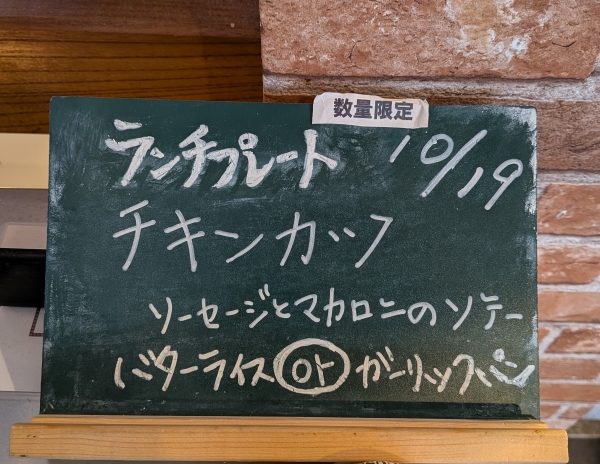 数量限定
ランチプレート 10/19
チキンカツ
ソーセージとマカロニのソテー
バターライス or ガーリックパン